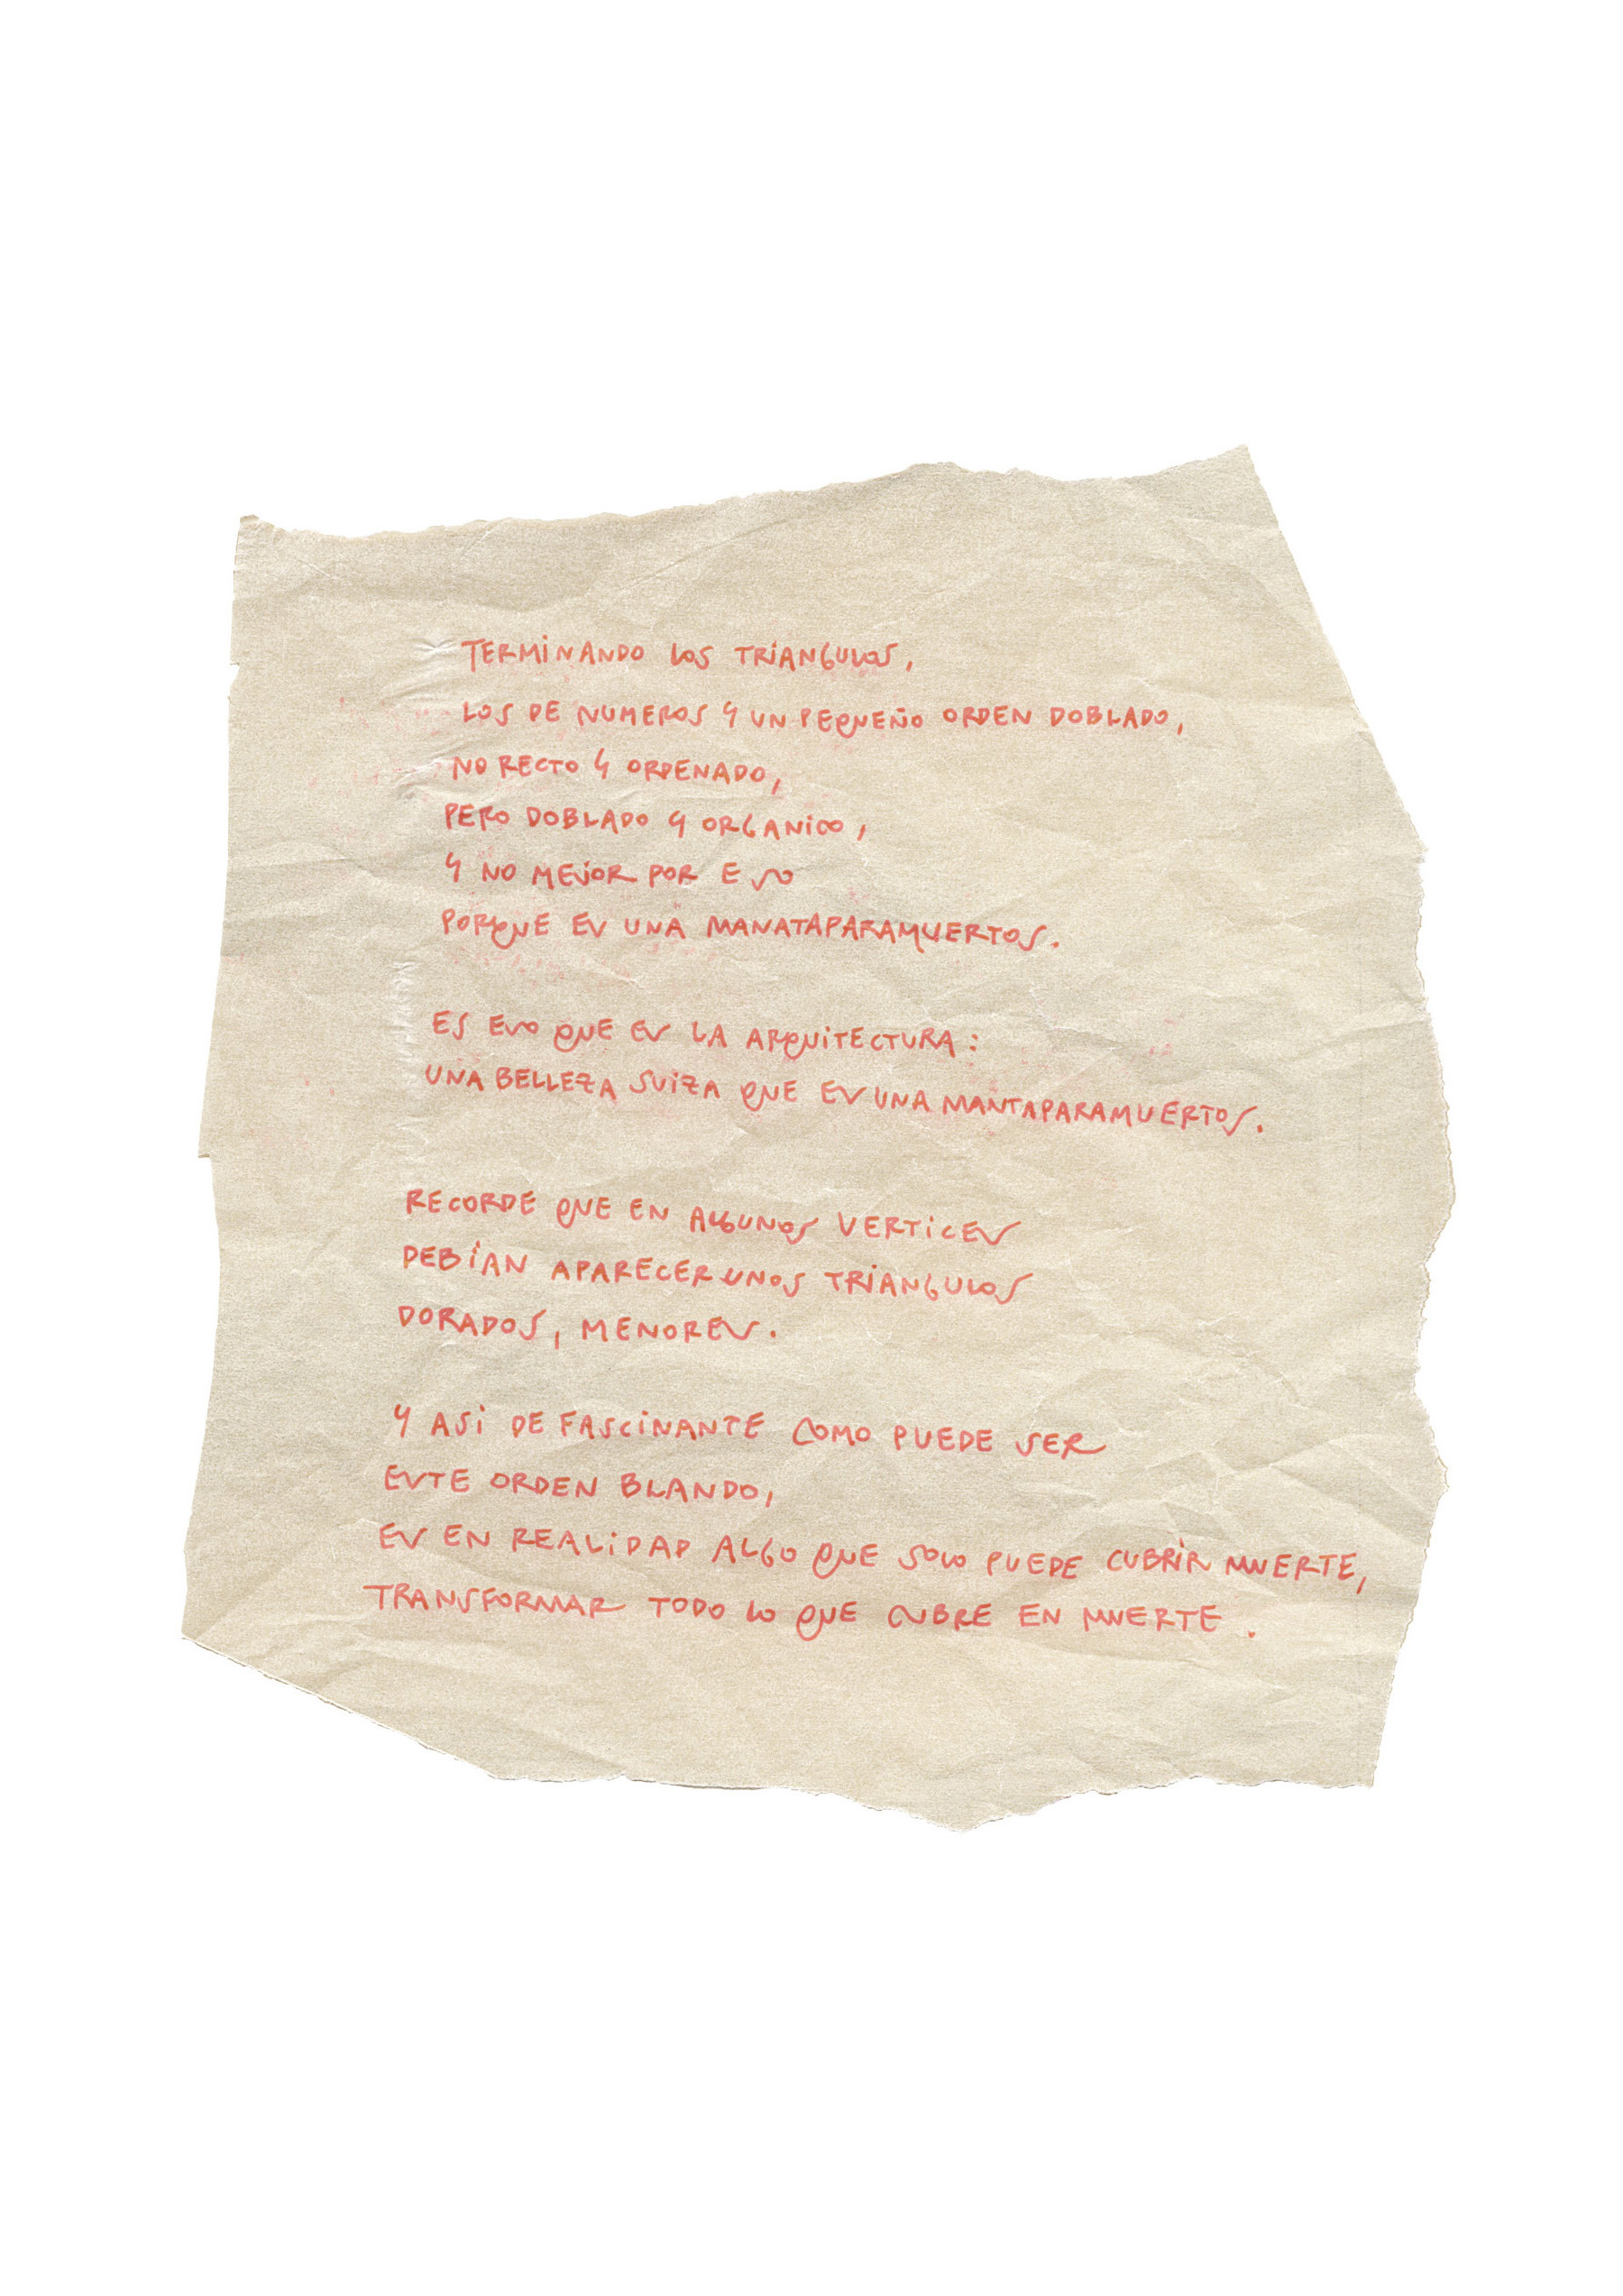 TERMINANDO LOS TRIANGULOS,
LOS DE NUMEROS Y UN PEQUEÑO ORDEN DOBLADO,
NO RECTO Y ORDENADO,
PERO DOBLADO Y ORGANICO,
Y NO MEJOR POR ESO
PORQUE ES UNA MANATAPARAMUERTOS.
ES ESO QUE ES LA ARQUITECTURA:
UNA BELLEZA SUIZA QUE ES UNA MANTAPARAMUERTOS.
RECORDE QUE EN ALGUNOS VERTICES
DEBÍAN APARECER UNOS TRIANGULOS
DORADOS, MENORES.
Y ASI DE FASCINANTE COMO PUEDE SER
ESTE ORDEN BLANDO,
ES EN REALIDAD ALGO QUE SOLO PUEDE CUBRIR MUERTE,
TRANSFORMAR TODO LO QUE CUBRE EN MUERTE.